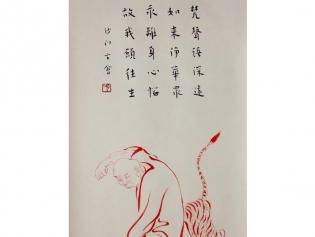 梵聲語深遠
如來淨華眾
永離身心惱
故我願往生
沙门 會